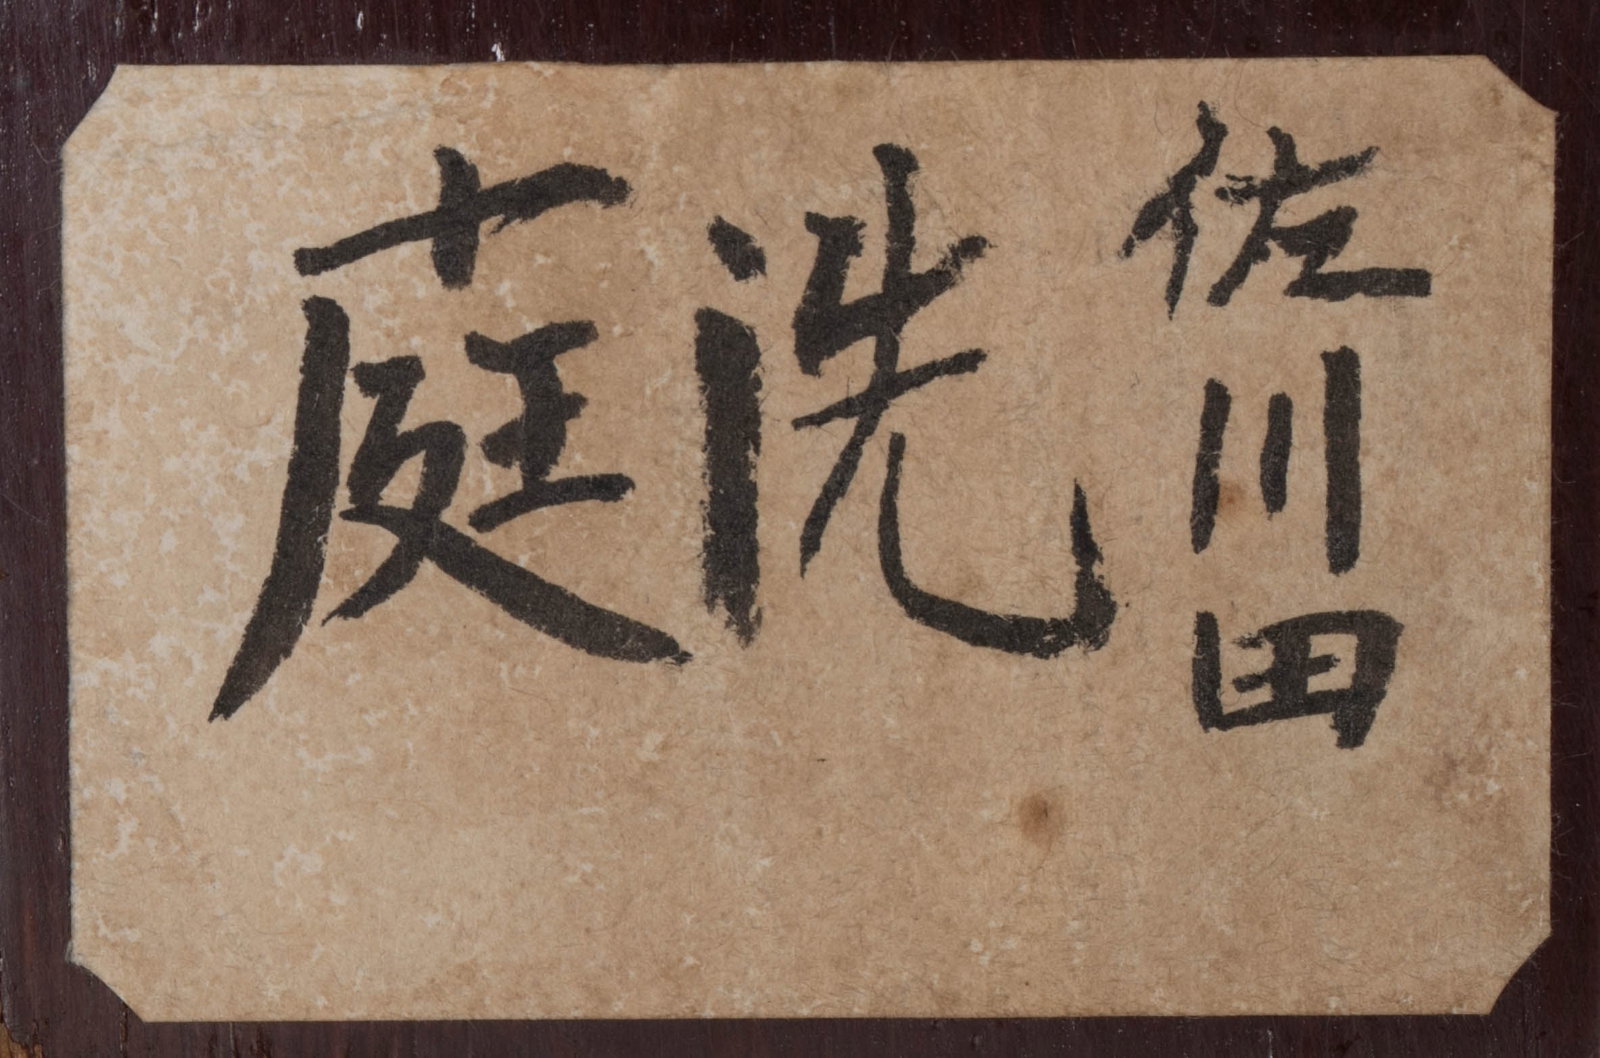 佐川田
洗庭